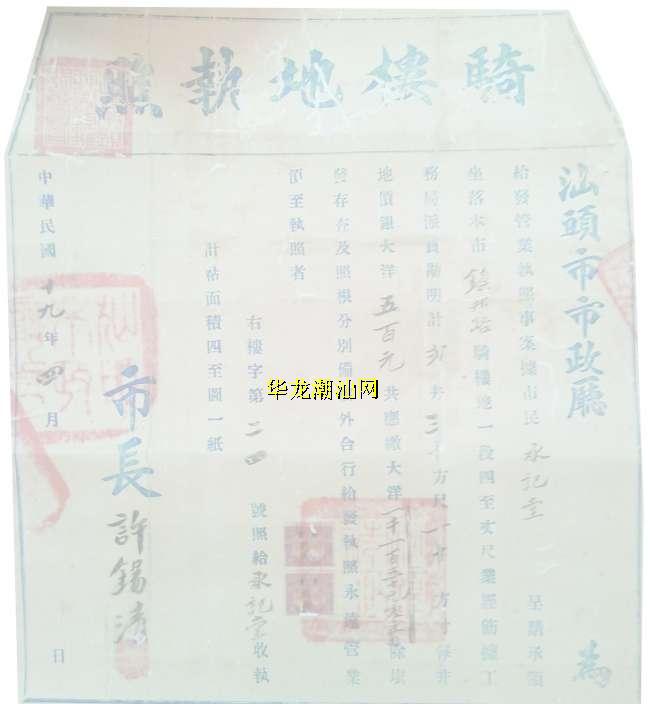 騎樓地執照
汕頭市市政廳 為
給發管業執照事案據市民永記堂呈請承領
坐落本市鎮邦路騎樓地一段四至丈尺業經飭據工
務局派員勘明計 井三十方尺一十方寸每井
地價銀大洋五百元共應繳大洋一千一百 元 除填
發存查及照根分別備 外合行給發執照永遠管業
須至執照者
計粘面積四至圖一紙
右樓字第二四號照給永記堂收執
市長許錫清
中華民國十九年四月 日
华龙潮汕网